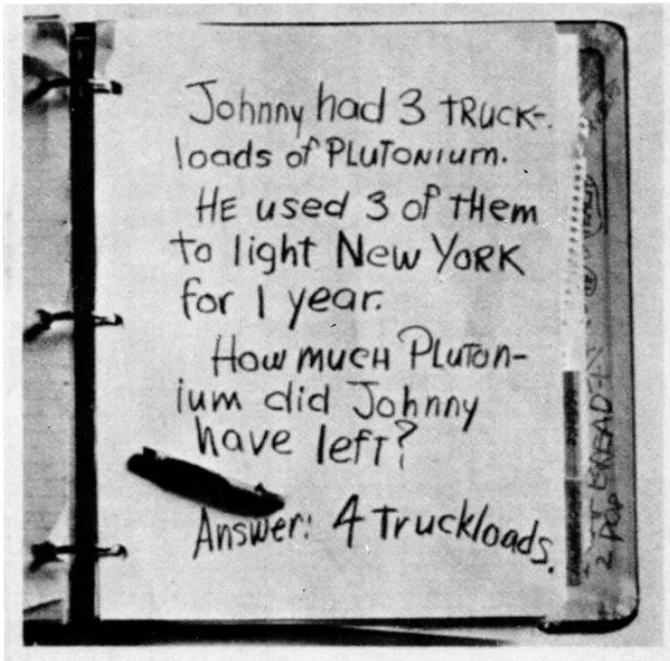 Johnny had 3 TRUCK-
loads of PLUTONIUM.
HE used 3 of THem
to light New YORK
for 1 year.
How mucH PluTon-
ium did Johnny
have lefT?
Answer: 4 Truckloads.